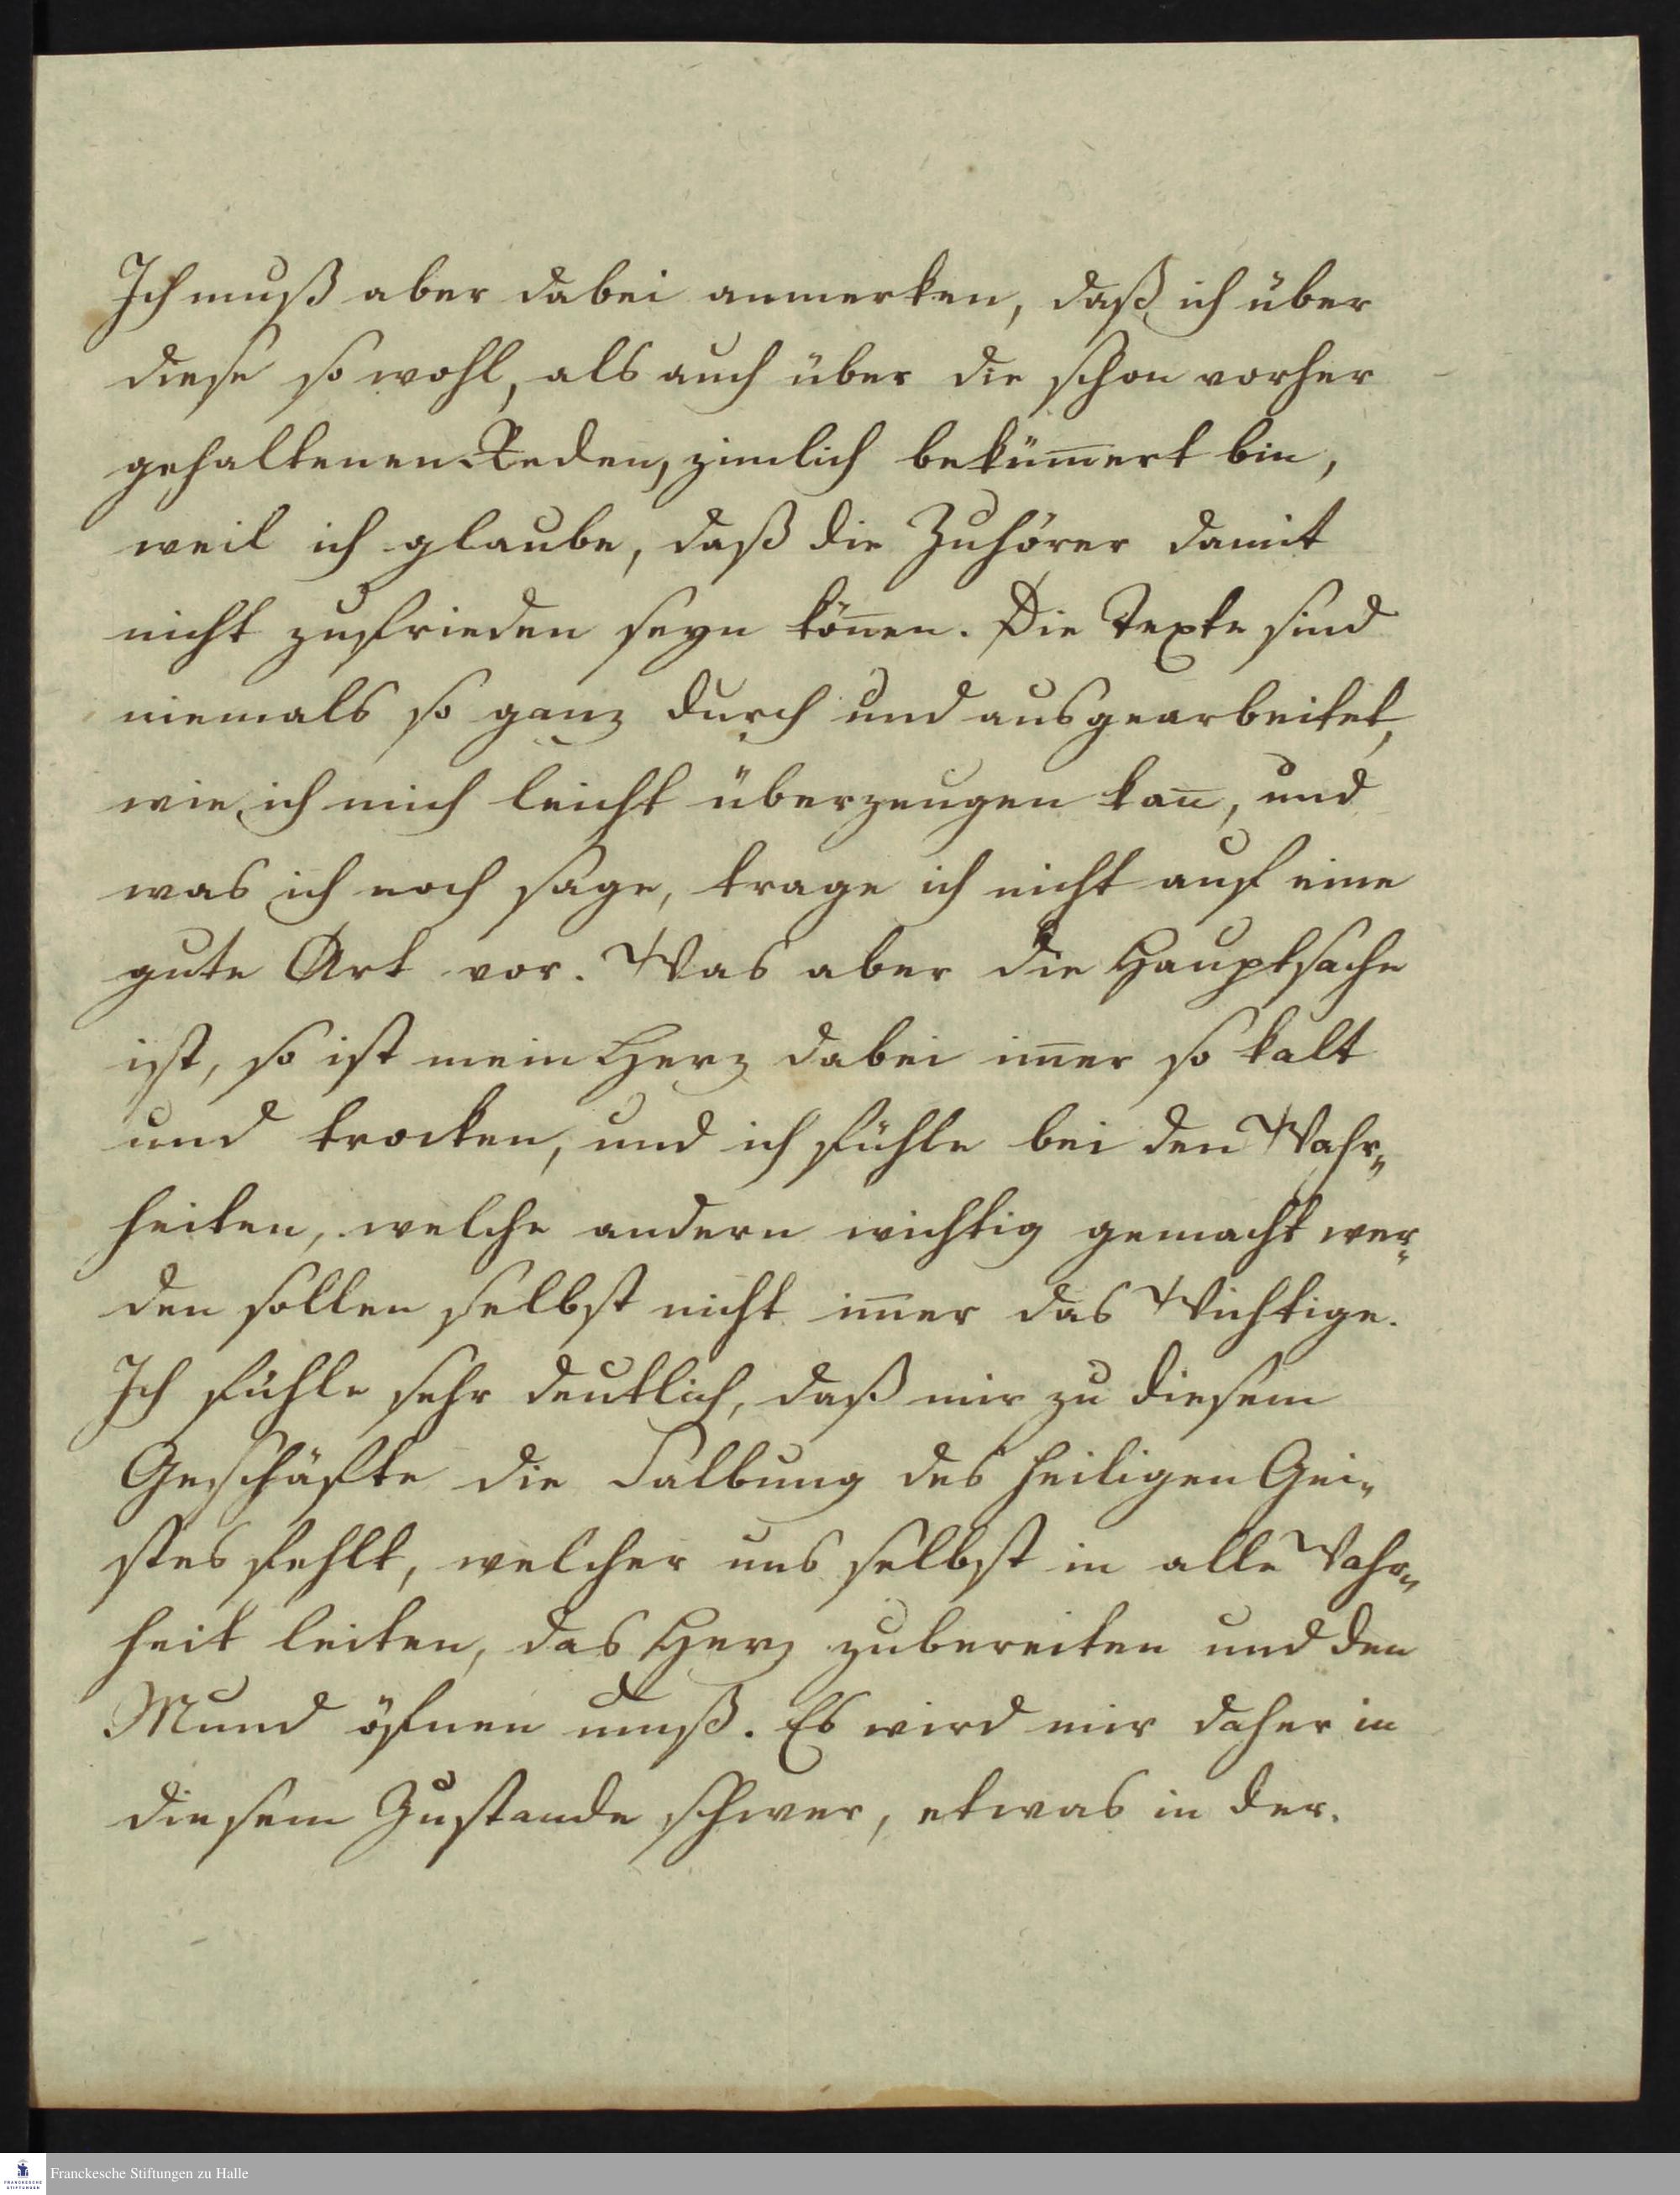 Ich muß aber dabei anmerken, daß ich über
diese so wohl, als auch über die schon vorher
gehaltenen Reden, zimlich bekümert bin,
weil ich glaube, daß die Zuhörer damit
nicht zufrieden seyn könen. Die Texte sind
niemals so ganz durch und ausgearbeitet,
wie ich mich leicht überzeugen kan̄, und
was ich noch sage, trage ich nicht auf eine
gute Art vor. Was aber die Hauptsache
ist, so ist mein Herz dabei im̄er so kalt
und trocken, und ich fühle bei den Wahr„
heiten, welche andern wichtig gemacht wer„
den sollen selbst nicht im̄er das Wichtige.
Ich fühle sehr deutlich, daß mir zu diesem
Geschäfte die Salbung des heiligen Gei„
stes fehlt, welcher uns selbst in alle Wahr„
heit leiten, das Herz zubereiten und den
Mund öfnen muß. Es wird mir daher in
diesem Zustande schwer, etwas in der.
Franckesche Stiftungen zu Halle
FRANCKESCHE
STIFTUNGEN